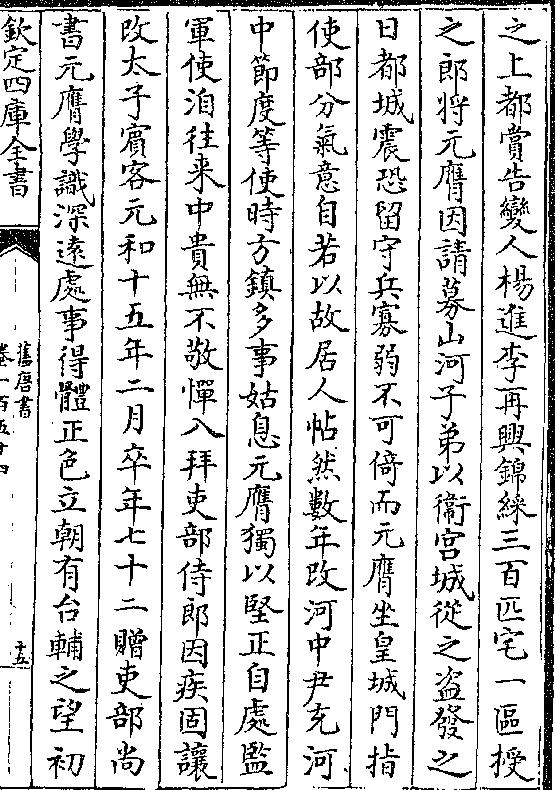 之上都賞告變人楊進李再興錦綵三百匹宅一區授
之郎將元膺因請募山河子弟以衞宮城從之盜發之
日都城震恐留守兵寡弱不可倚而元膺坐皇城門指
使部分氣意自若以故居人帖然數年改河中尹充河
中節度等使時方鎮多事姑息元膺獨以堅正自處監
軍使洎往来中貴無不敬憚入拜吏部侍郎因疾固讓
改太子賓客元和十五年二月卒年七十二贈吏部尚
書元膺學識深遠處事得體正色立朝有台輔之望初
欽定四庫全書
舊唐書
卷一百五十四
十五